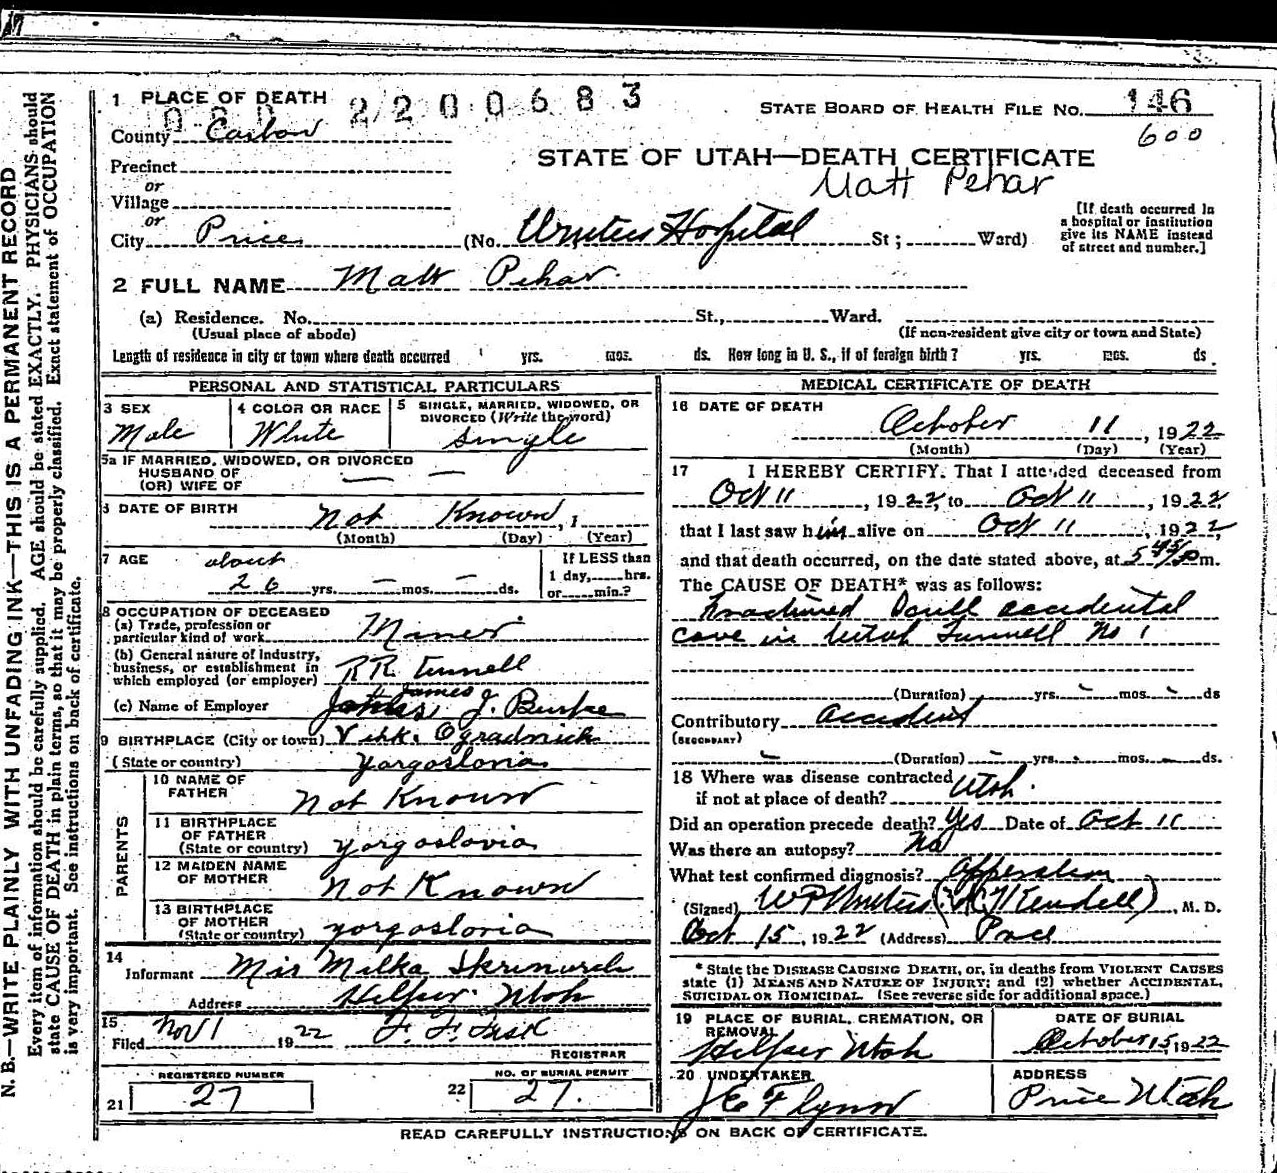 1 PLACE OF DEATH
2200683
STATE BOARD OF HEALTH FILE NO. 146
600
County Carbon
STATE OF UTAH—DEATH CERTIFICATE
Precinct
Matt Pehar
or
Village
or
City Price (No. Hospital St; Ward)
[If death occurred in
a hospital or institution
give its NAME instead
of street and number.]
2 FULL NAME Matt Pehar
(a) Residence. No. St., Ward.
(Usual place of abode) (If non-resident give city or town and State)
Length of residence in city or town where death occurred yrs. mos. ds. How long in U. S., if of foreign birth? yrs. mos. ds.
PERSONAL AND STATISTICAL PARTICULARS
3 SEX 4 COLOR OR RACE 5 SINGLE, MARRIED, WIDOWED, OR
DIVORCED (Write the word)
Male White single
5a IF MARRIED, WIDOWED, OR DIVORCED
HUSBAND OF
(OR) WIFE OF
6 DATE OF BIRTH
Not Known, 1
(Month) (Day) (Year)
7 AGE about
26 yrs. — mos. — ds.
If LESS than
1 day, hrs.
or min.?
8 OCCUPATION OF DECEASED
(a) Trade, profession or
particular kind of work Miner
(b) General nature of industry,
business, or establishment in
which employed (or employer) RR tunnell
(c) Name of Employer James J. Burke
9 BIRTHPLACE (City or town) Ogradnick
(State or country) yorgoslovia
PARENTS
10 NAME OF
FATHER Not Known
11 BIRTHPLACE
OF FATHER
(State or country) yorgoslovia
12 MAIDEN NAME
OF MOTHER Not Known
13 BIRTHPLACE
OF MOTHER
(State or country) yorgoslovia
14
Informant Milka
Address Helper Utah
15
Filed Nov 1 1922 F. F. Fisk
REGISTRAR
REGISTERED NUMBER NO. OF BURIAL PERMIT
21 27 22 27.
MEDICAL CERTIFICATE OF DEATH
16 DATE OF DEATH
October 11, 1922
(Month) (Day) (Year)
17 I HEREBY CERTIFY. That I attended deceased from
Oct 11, 1922, to Oct 11, 1922,
that I last saw him alive on Oct 11, 1922,
and that death occurred, on the date stated above, at 5 45/P m.
The CAUSE OF DEATH* was as follows:
Fractured Scull accidental
cave in Utah Tunnell No 1
(Duration) yrs. — mos. — ds
Contributory accident
(SECONDARY)
(Duration) — yrs. mos. — ds.
18 Where was disease contracted
if not at place of death? Utah.
Did an operation precede death? Yes Date of Oct 11
Was there an autopsy? No
What test confirmed diagnosis? opperation
(Signed) , M. D.
Oct 15, 1922 (Address) Price
* State the DISEASE CAUSING DEATH, or, in deaths from VIOLENT CAUSES
state (1) MEANS AND NATURE OF INJURY; and (2) whether ACCIDENTAL,
SUICIDAL OR HOMICIDAL. (See reverse side for additional space.)
19 PLACE OF BURIAL, CREMATION, OR
REMOVAL
Helper Utah
DATE OF BURIAL
October 15, 1922
20 UNDERTAKER
J E Flynn
ADDRESS
Price Utah
READ CAREFULLY INSTRUCTIONS ON BACK OF CERTIFICATE.
N. B.—WRITE PLAINLY WITH UNFADING INK—THIS IS A PERMANENT RECORD
Every item of information should be carefully supplied. AGE should be stated EXACTLY. PHYSICIANS should
state CAUSE OF DEATH in plain terms, so that it may be properly classified. Exact statement of OCCUPATION
is very important. See instructions on back of certificate.